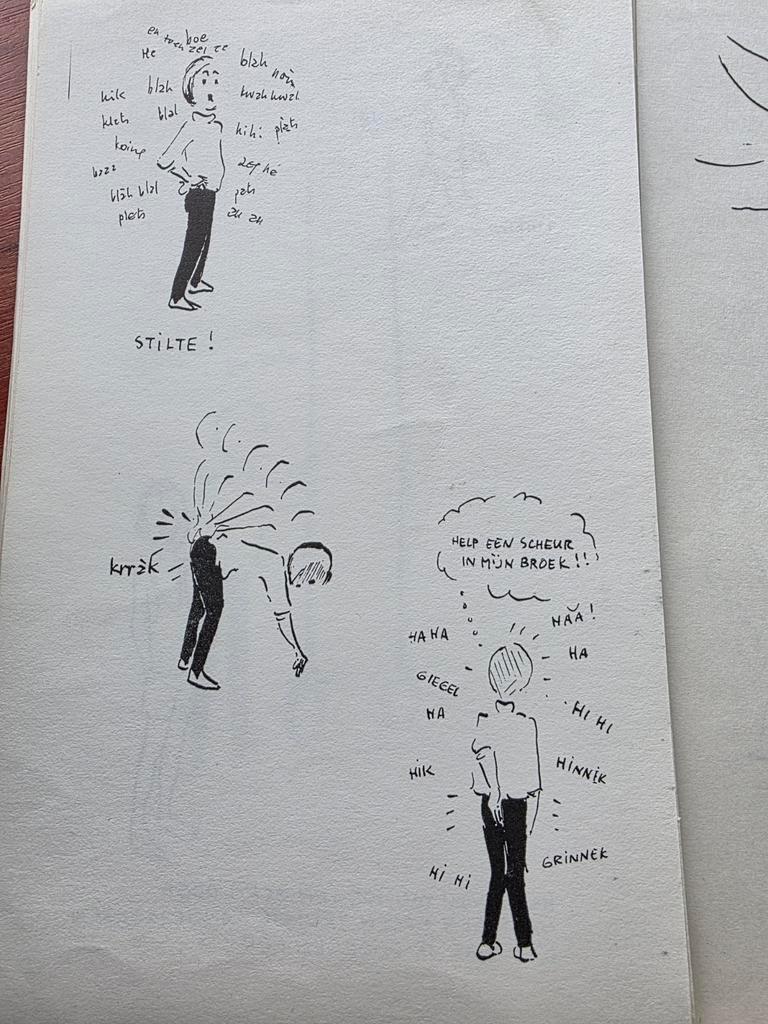 boe
en toen zei ze
He
blah
hoin
hik
blah
kwah kwah
klets
blal
hihi
plets
koing
zeg he
bzzz
blah blal
pets
plets
zu zu
STILTE!
krràk
HELP EEN SCHEUR
IN MIJN BROEK!!
HAHA
HĂA!
HA
GIEGEL
HA
HI HI
HIK
HINNIK
GRINNEK
HI HI